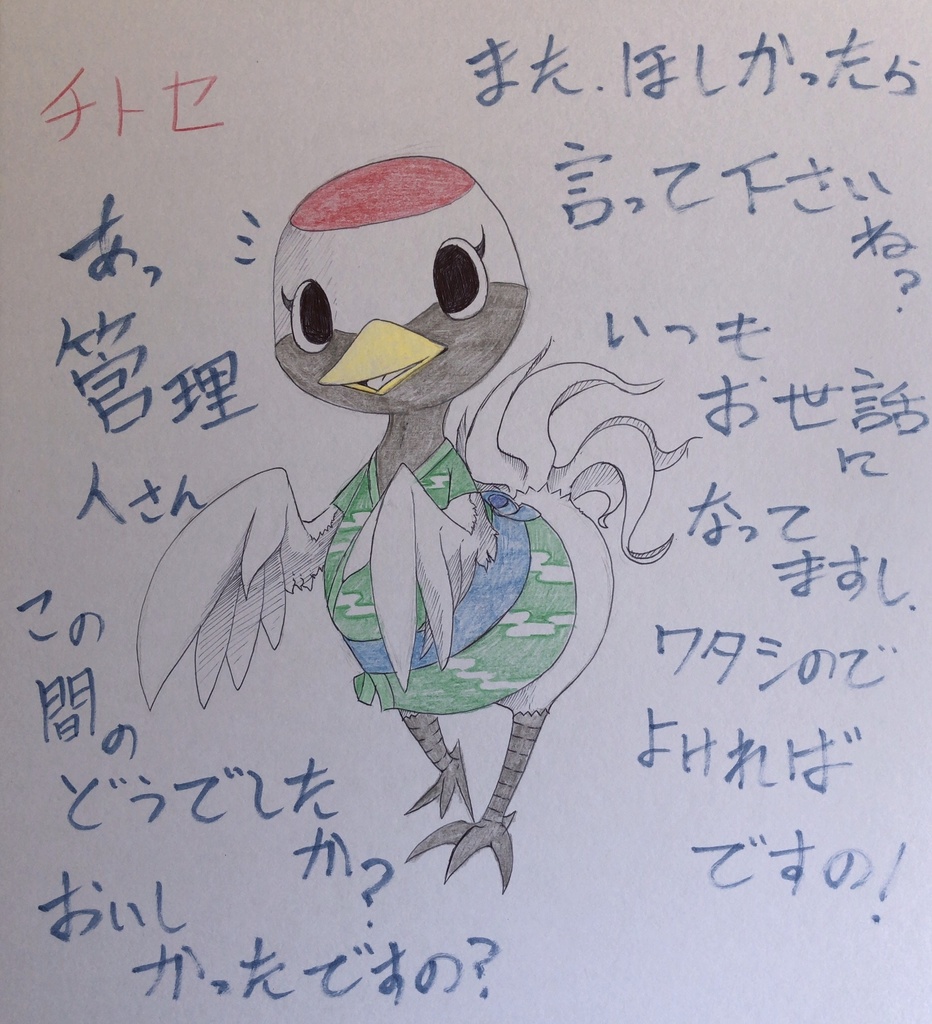 チトセ
あっ
管理
人さん
この
間の
どうでした
か?
おいし
かったですの?
また、ほしかったら
言って下さい
ね?
いつも
お世話
に
なって
ますし、
ワタシので
よければ
ですの!